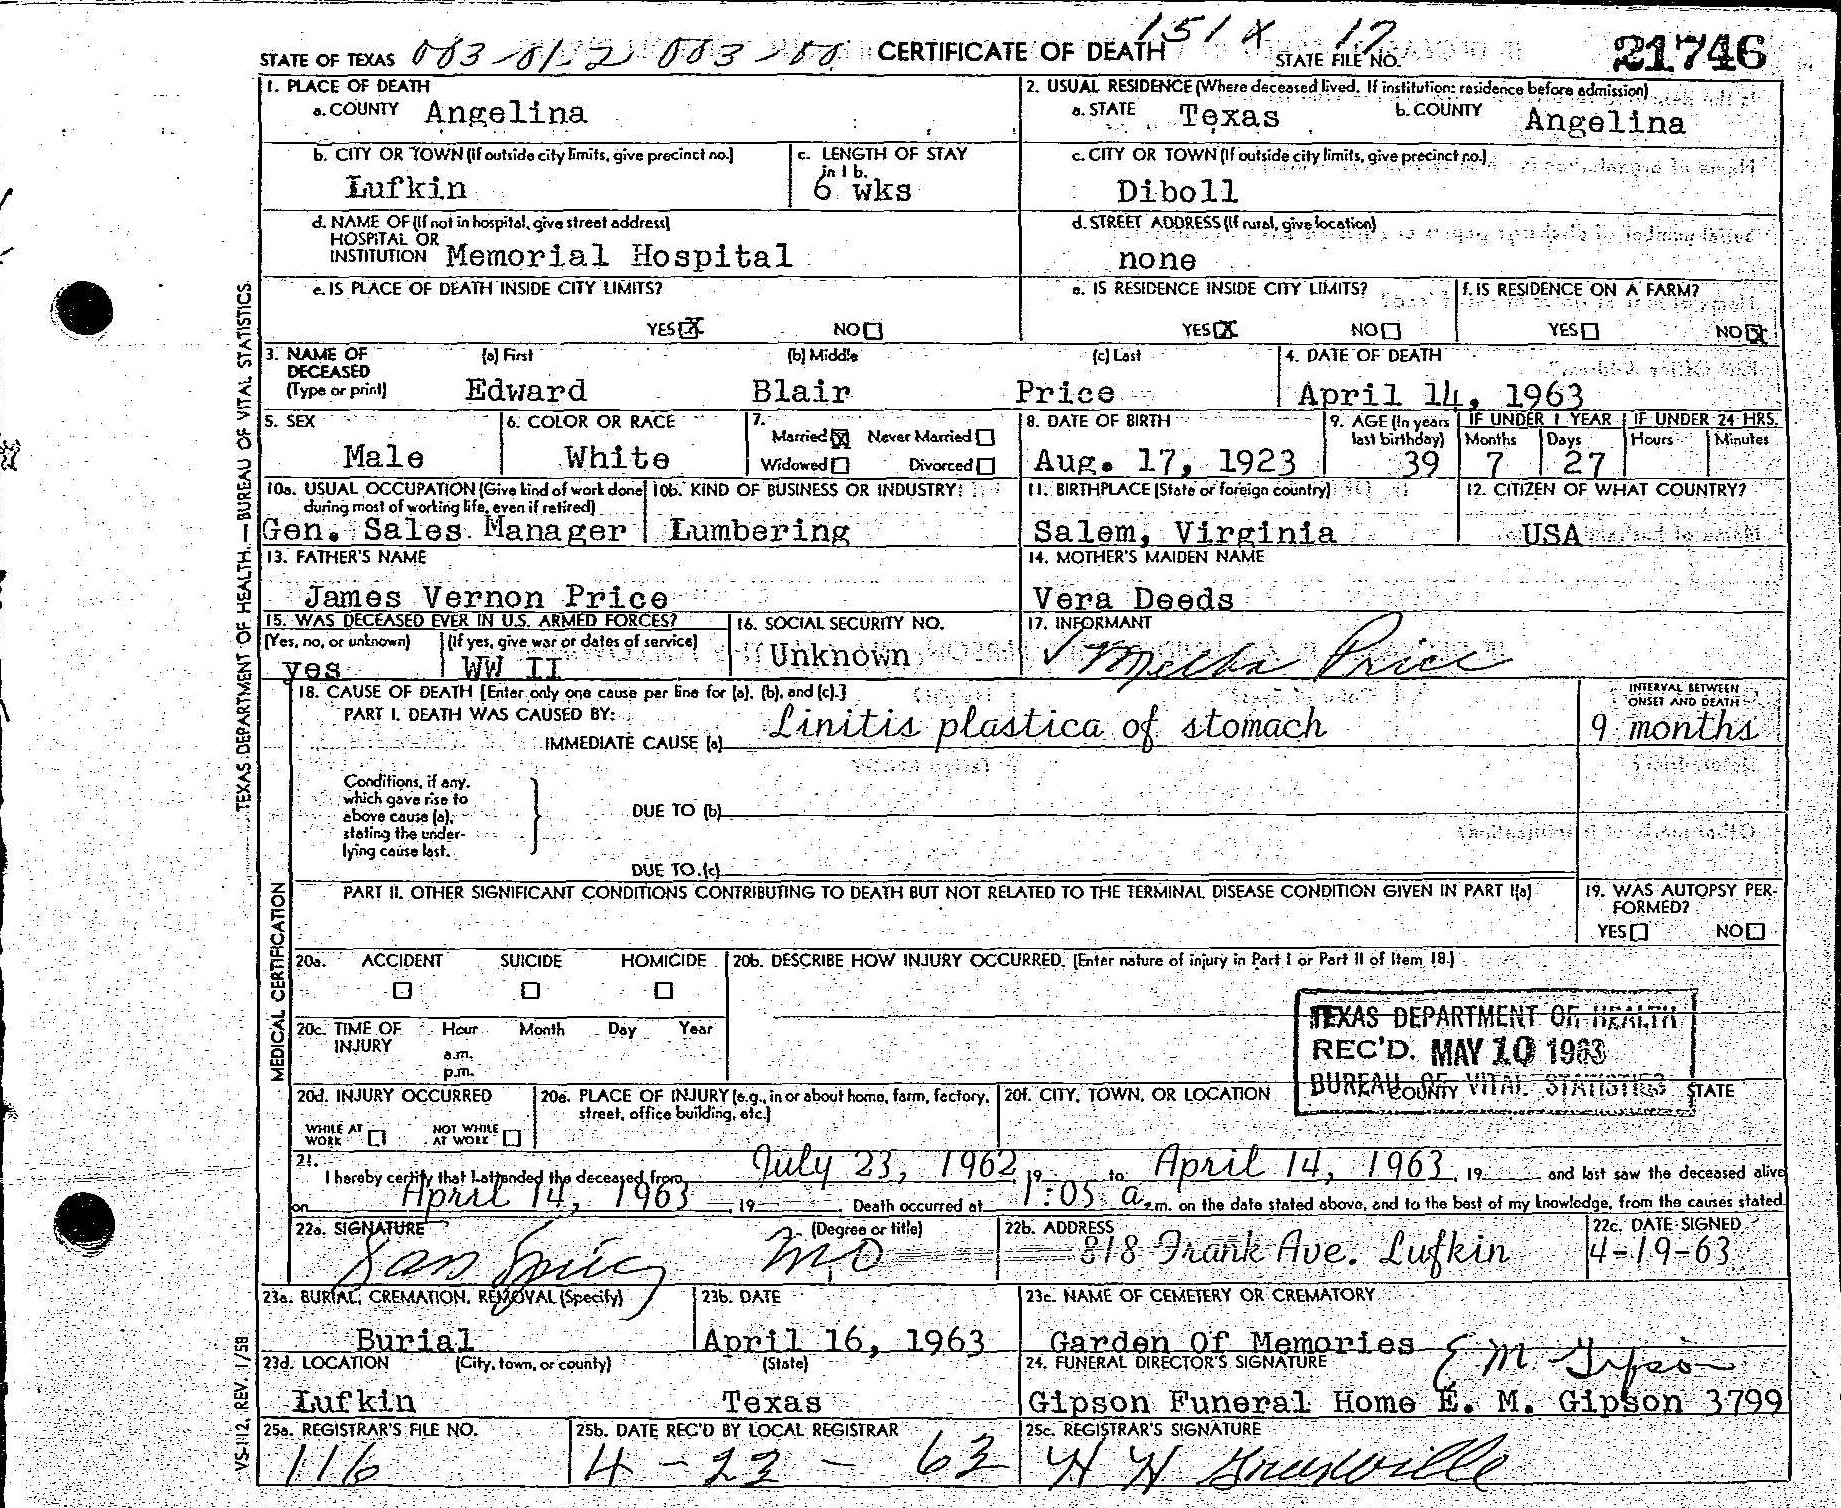 STATE OF TEXAS CERTIFICATE OF DEATH 151X 17 STATE FILE NO. 21746
1. PLACE OF DEATH
a. COUNTY Angelina
2. USUAL RESIDENCE (Where deceased lived. If institution: residence before admission)
a. STATE Texas b. COUNTY Angelina
b. CITY OR TOWN (If outside city limits, give precinct no.)
Lufkin
c. LENGTH OF STAY in 1 b.
6 wks
c. CITY OR TOWN (If outside city limits, give precinct no.)
Diboll
d. NAME OF (If not in hospital, give street address)
HOSPITAL OR
INSTITUTION Memorial Hospital
d. STREET ADDRESS (If rural, give location)
none
e. IS PLACE OF DEATH INSIDE CITY LIMITS?
YES X NO
e. IS RESIDENCE INSIDE CITY LIMITS?
YES X NO
f. IS RESIDENCE ON A FARM?
YES NO X
3. NAME OF DECEASED (Type or print)
(a) First (b) Middle (c) Last
Edward Blair Price
4. DATE OF DEATH
April 14, 1963
5. SEX
Male
6. COLOR OR RACE
White
7.
Married X Never Married
Widowed Divorced
8. DATE OF BIRTH
Aug. 17, 1923
9. AGE (In years last birthday)
39
IF UNDER 1 YEAR
Months 7 Days 27
IF UNDER 24 HRS.
Hours Minutes
10a. USUAL OCCUPATION (Give kind of work done during most of working life, even if retired)
Gen. Sales Manager
10b. KIND OF BUSINESS OR INDUSTRY
Lumbering
11. BIRTHPLACE (State or foreign country)
Salem, Virginia
12. CITIZEN OF WHAT COUNTRY?
USA
13. FATHER'S NAME
James Vernon Price
14. MOTHER'S MAIDEN NAME
Vera Deeds
15. WAS DECEASED EVER IN U.S. ARMED FORCES?
(Yes, no, or unknown) (If yes, give war or dates of service)
yes WW II
16. SOCIAL SECURITY NO.
Unknown
17. INFORMANT
Price
18. CAUSE OF DEATH [Enter only one cause per line for (a), (b), and (c).]
PART I. DEATH WAS CAUSED BY:
IMMEDIATE CAUSE (a) Linitis plastica of stomach
INTERVAL BETWEEN ONSET AND DEATH
9 months
Conditions, if any, which gave rise to above cause (a), stating the underlying cause last.
DUE TO (b)
DUE TO (c)
PART II. OTHER SIGNIFICANT CONDITIONS CONTRIBUTING TO DEATH BUT NOT RELATED TO THE TERMINAL DISEASE CONDITION GIVEN IN PART I(a)
19. WAS AUTOPSY PERFORMED?
YES NO
20a. ACCIDENT SUICIDE HOMICIDE
20b. DESCRIBE HOW INJURY OCCURRED. (Enter nature of injury in Part I or Part II of Item 18.)
20c. TIME OF INJURY Hour Month Day Year
a.m.
p.m.
TEXAS DEPARTMENT OF HEALTH
REC'D. MAY 10 1963
BUREAU OF VITAL STATISTICS
20d. INJURY OCCURRED
WHILE AT WORK NOT WHILE AT WORK
20e. PLACE OF INJURY (e.g., in or about home, farm, factory, street, office building, etc.)
20f. CITY, TOWN, OR LOCATION COUNTY STATE
21.
I hereby certify that I attended the deceased from July 23, 1962, 19 to April 14, 1963, 19 and last saw the deceased alive
on April 14, 1963, 19 Death occurred at 1:05 a.m. on the date stated above, and to the best of my knowledge, from the causes stated
22a. SIGNATURE (Degree or title)
MD
22b. ADDRESS
818 Frank Ave. Lufkin
22c. DATE SIGNED
4-19-63
23a. BURIAL, CREMATION, REMOVAL (Specify)
Burial
23b. DATE
April 16, 1963
23c. NAME OF CEMETERY OR CREMATORY
Garden Of Memories
23d. LOCATION (City, town, or county) (State)
Lufkin Texas
24. FUNERAL DIRECTOR'S SIGNATURE
E M Gipson
Gipson Funeral Home E. M. Gipson 3799
25a. REGISTRAR'S FILE NO.
116
25b. DATE REC'D BY LOCAL REGISTRAR
4-23-63
25c. REGISTRAR'S SIGNATURE
TEXAS DEPARTMENT OF HEALTH — BUREAU OF VITAL STATISTICS
MEDICAL CERTIFICATION
VS-112, REV. 1/58